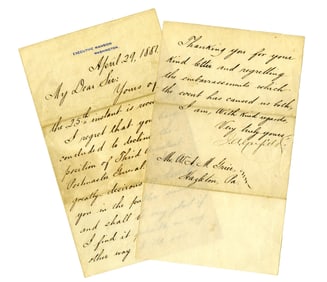 EXECUTIVE MANSION
WASHINGTON.
April 29, 1881
My Dear Sir:
Yours of
the 25th instant is
I regret that you
concluded to decline
position of Third
Postmaster General
greatly
you in the
and shall
I find it
other way
Thanking you for your
kind letter and regretting
the embarrassments which
the event has caused us both,
I am, With kind regards
Very truly yours,
J. A. Garfield
Mr. W. A. M.
Hazleton, Pa.